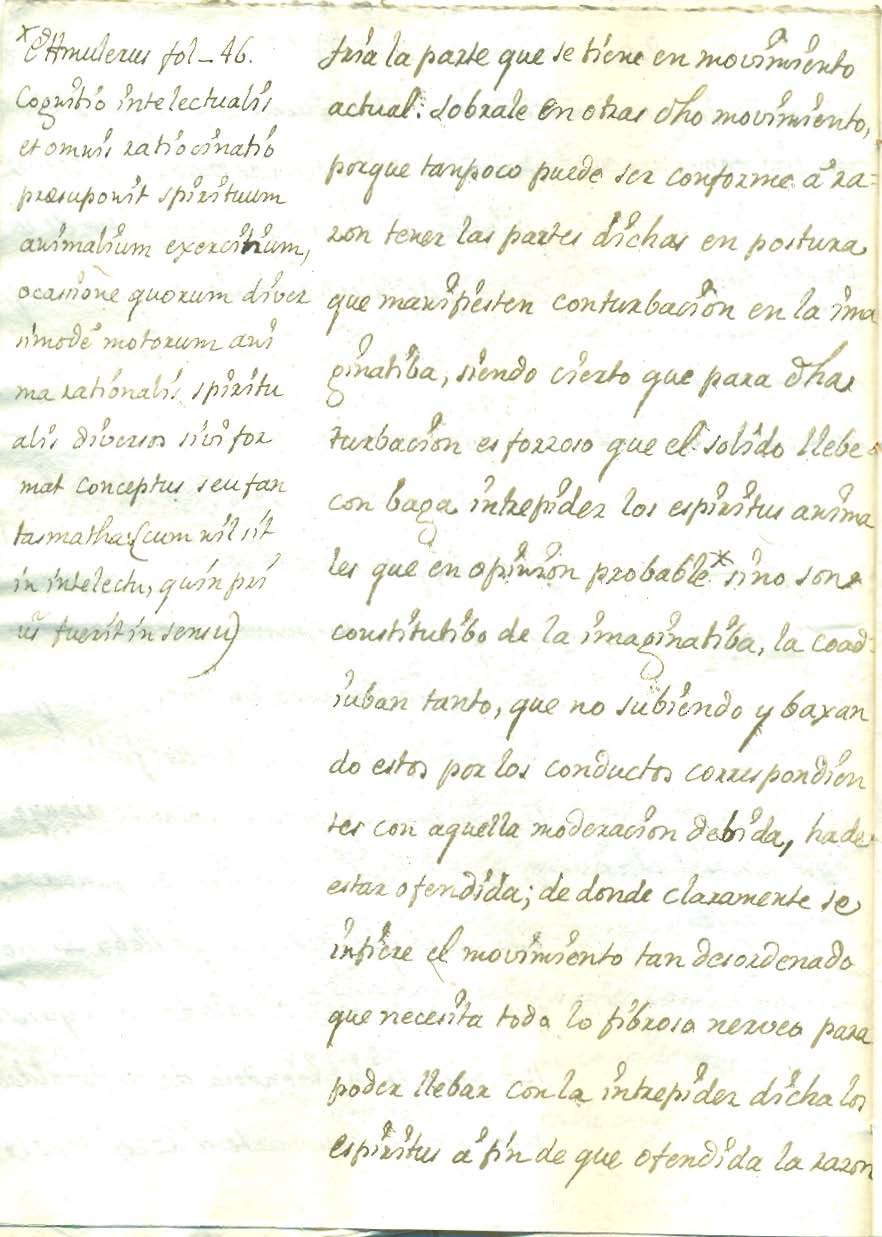 x Ettmulerus fol_46.
Cognitio intelectualis
et omnis ratiocinatio
præsuponit spirituum
animalium exercitium,
ocasione quorum diver
simode motorum ani
ma rationalis spiritu
alis diversos sivi for
mat conceptus seu fan
tasmatha (cum nil sit
in intelectu, quin pri
us fuerit in sensu)
fria la parte que se tiene en movimiento
actual: sobrale en otras dho movimiento,
porque tanpoco puede ser conforme â ra=
zon tener las partes dichas en postura
que manifiesten conturbacion en la ima
ginatiba, siendo cierto que para dha
turbacion es forzoso que el solido llebe
con baga intrepidez los espiritus anima
les que en opinion probable x sino son
constitutibo de la imaginatiba, la coad
iuban tanto, que no subiendo y baxan
do estos por los conductos correspondien
tes con aquella moderacion debida, ha de
estar ofendida; de donde claramente se
infiere el movimiento tan desordenado
que necesita todo lo fibroso nerveo para
poder llebar con la intrepidez dicha los
espiritus â fin de que ofendida la razon